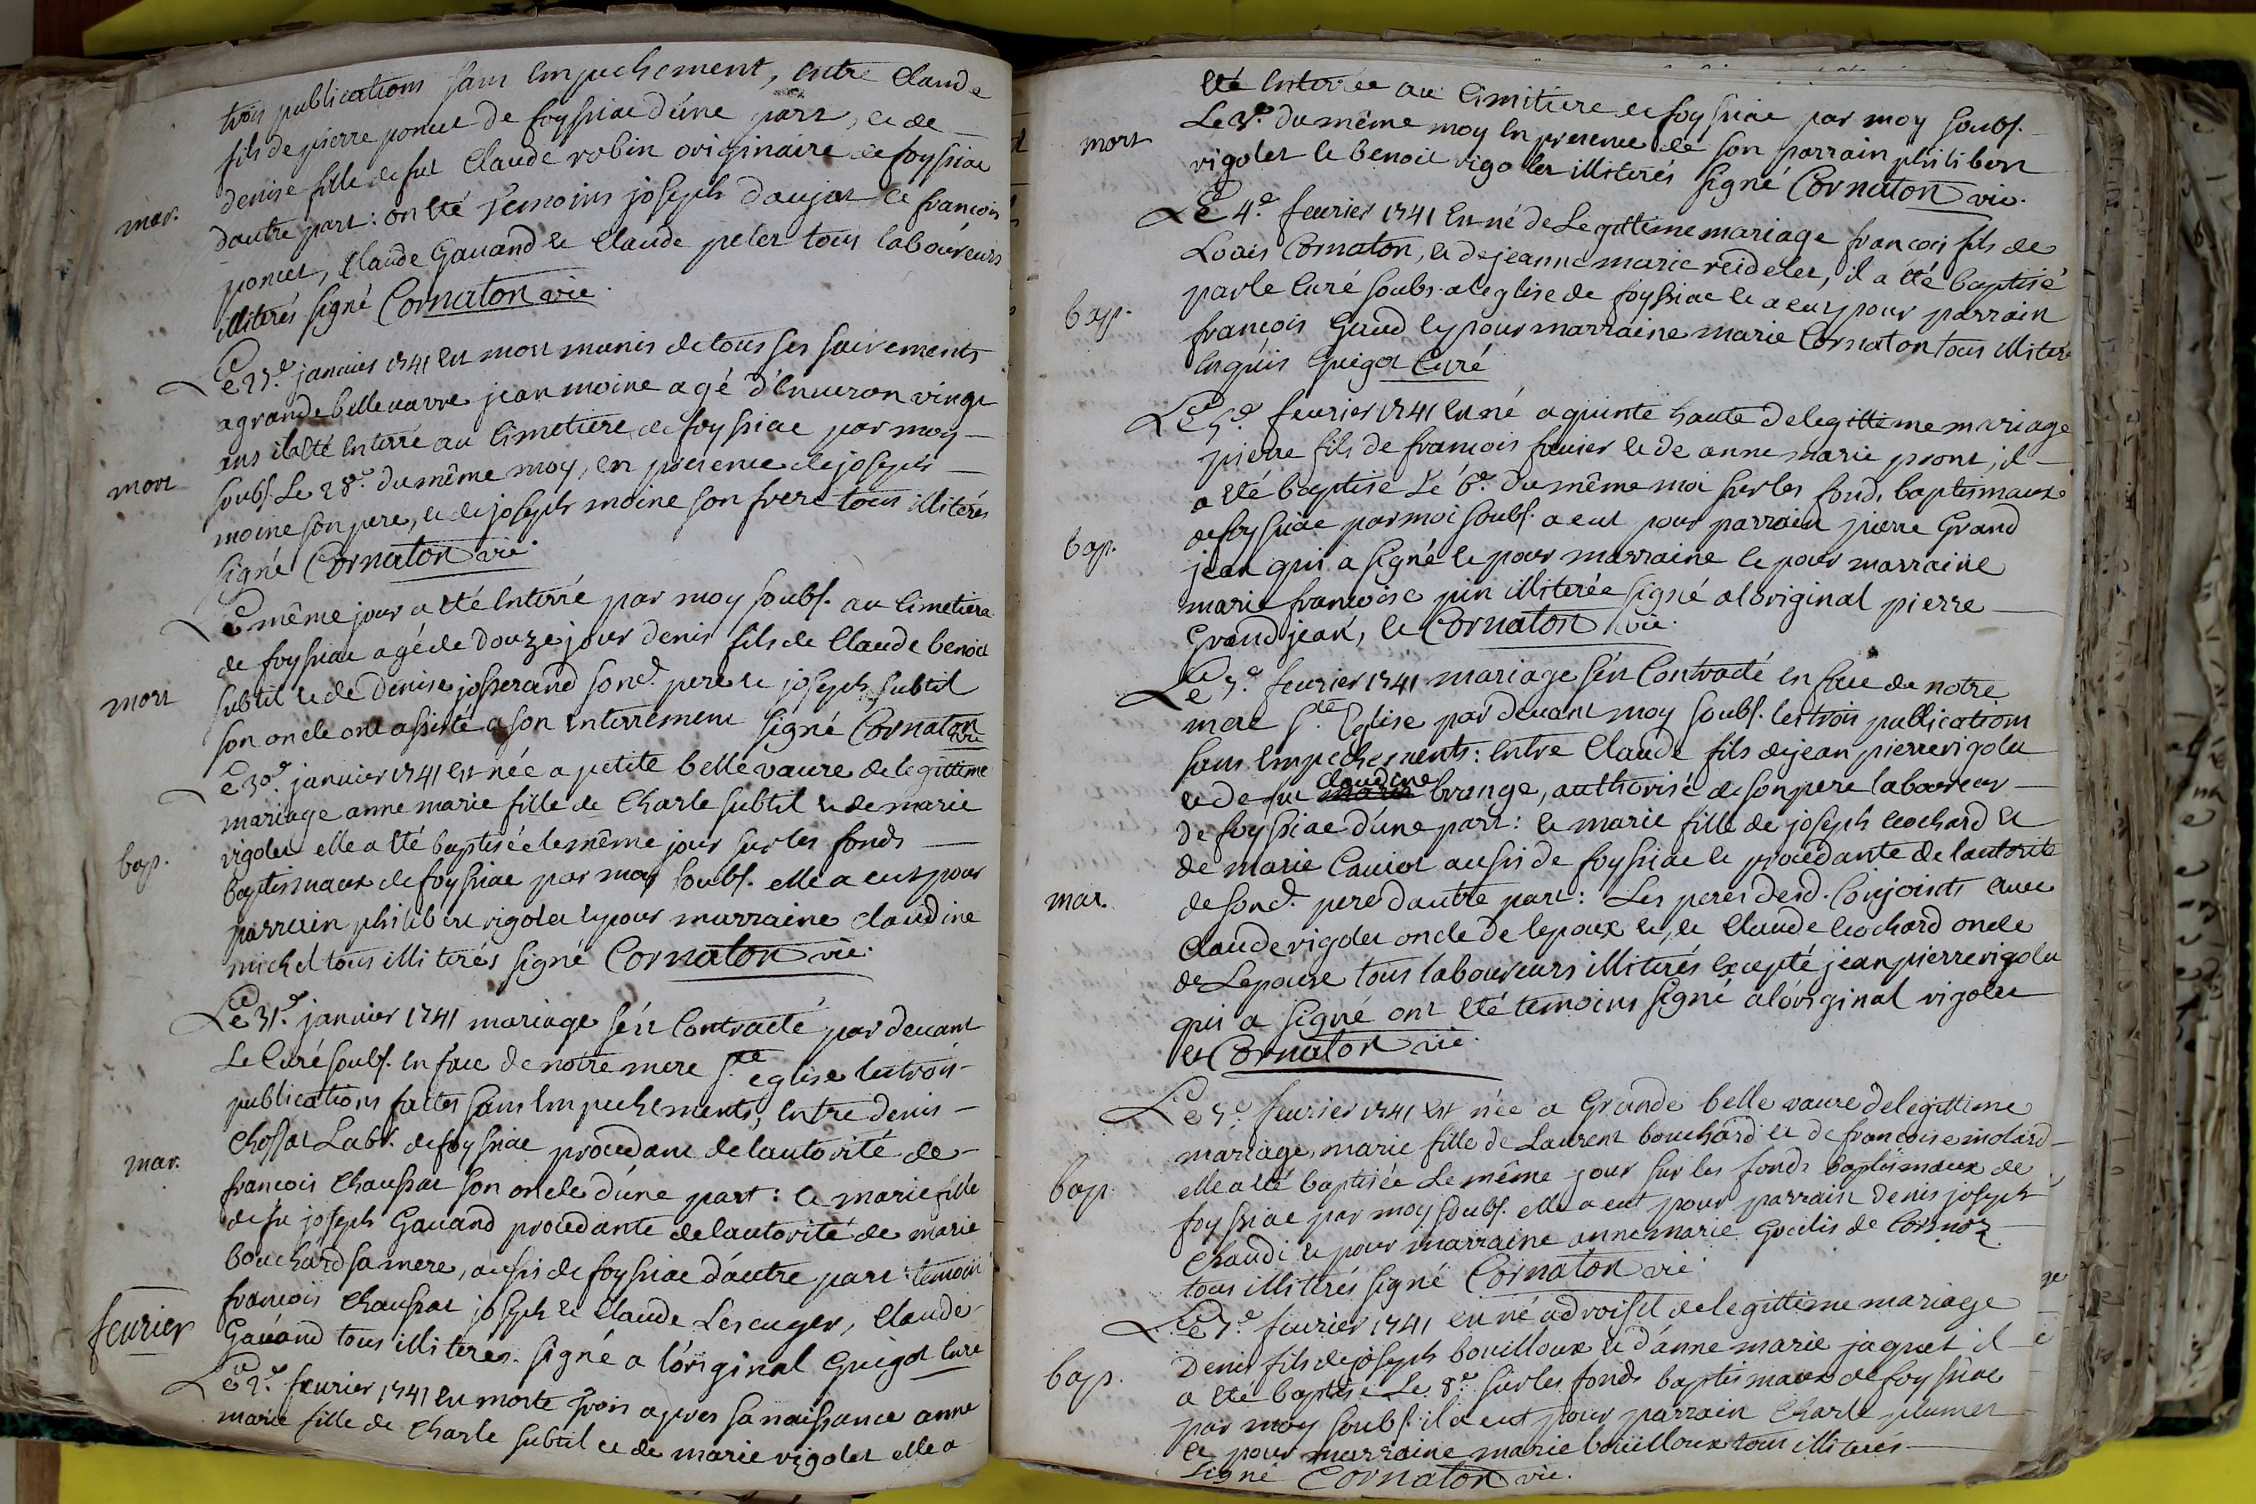 trois publications sans empechement, entre Claude
fils de pierre poncet de foyssiac d'une part, et de
denise fille de fut Claude robin originaire de foyssiac
mar.
dautre part : on été témoins joseph daujat et francois
poncet, Claude Gavand et Claude peter tous laboureurs
illiterés signé Cornaton vic.
Le 27.e janvier 1741 est mort munis de tous ses sacrements
a grande bellevavre jean moine agé d'environ vingt
ans il a été enterré au Cimetiere de foyssiac par moy
mort
soubs. Le 28.e du même moy, en presence de joseph
moine son pere, et de joseph moine son frere tous illiterés
signé Cornaton vic.
Le même jour a été enterré par moy soubs. au Cimetiere
de foyssiac agé de douze jour denis fils de Claude benoit
mort
subtil et de denise josserand son d. pere et joseph subtil
son oncle ont assisté a son enterrement signé Cornaton
vic
Le 30.e janvier 1741 est née a petite bellevavre de legittime
mariage anne marie fille de Charle subtil et de marie
bap.
vigolet elle a été baptisée le même jour sur les fonds
baptismaux de foyssiac par moy soubs. elle a eut pour
parrain philibert vigolet et pour marraine claudine
michel tous illiterés signé Cornaton vic.
Le 31.e janvier 1741 mariage s'est Contracté par devant
Le Curé soubs. en face de notre mere S.te eglise les trois
publications faites sans empechements, entre denis
chossat Lab.r de foyssiac procedant de l'autorité de
mar.
francois Chaussat son oncle d'une part : et marie fille
de fu joseph Gavand procedante de l'autorité de marie
bouchard sa mere, aussi de foyssiac d'autre part : temoin
francois Chaussat joseph et Claude Lescuyer, Claude
fevrier
Gavand tous illiteres. signé a l'original Guigot Curé
Le 2.e fevrier 1741 est morte trois apres sa naissance anne
marie fille de Charle subtil et de marie vigolet elle a
été enterrée au Cimitiere de foyssiac par moy soubs.
mort
Le 3.e du même moy en presence de son parrain philibert
vigolet et benoit vigolet illiterés signé Cornaton vic.
Le 4.e fevrier 1741 est né de Legittime mariage francois fils de
Louis Cornaton, et de jeanne marie reidelet, il a été baptisé
bap.
par le Curé soubs. a leglise de foyssiac et a eut pour parrain
francois Gaud et pour marraine marie Cornaton tous illiteré
enquis Guigot Curé
Le 5.e fevrier 1741 est né a quinte haute de legittime mariage
pierre fils de francois favier et de anne marie pront, il
a été baptisé Le 6.e du même moi sur les fonds baptismaux
bap.
de foyssiac par moi soubs. a eut pour parrain pierre Grand
jean qui a signé et pour marraine et pour marraine
marie francoise pin illiterée signé a l'original pierre
Grandjean, et Cornaton vic.
Le 7.e fevrier 1741 mariage s'est Contracté en face de notre
mere S.te Eglise par devant moy soubs. les trois publications
sans empechements : entre Claude fils de jean pierre vigolet
et de fut claudine brange, authorisé de son pere laboureur
de foyssiac d'une part : et marie fille de joseph cochard et
de marie Caviot aussi de foyssiac et procedante de l'autorité
mar.
de son d. pere dautre part : Les peres desd. Conjoints avec
Claude vigolet oncle de lepoux et, et Claude cochard oncle
de Lepouse tous laboureurs illiterés excepté jean pierre vigolet
qui a signé ont été temoins signé a l'original vigolet
et Cornaton vic.
Le 7.e fevrier 1741 est née a Grande belle vavre de legittime
mariage, marie fille de Laurent bouchard et de francoise molard
bap.
elle a été baptisée Le même jour sur les fonds baptismaux de
foyssiac par moy soubs. elle a eut pour parrain denis joseph
Chaudi et pour marraine anne marie Goulis de Cormoz
tous illiterés signé Cornaton vic.
Le 7.e fevrier 1741 est né a droisel de legittime mariage
Denis fils de joseph bouilloux et d'anne marie jaquet il
bap.
a été baptisé Le 8.e sur les fonds baptismaux de foyssiac
par moy soubs. il a eut pour parrain Charle plumet
et pour marraine marie bouilloux tous illiterés
signé Cornaton vic.